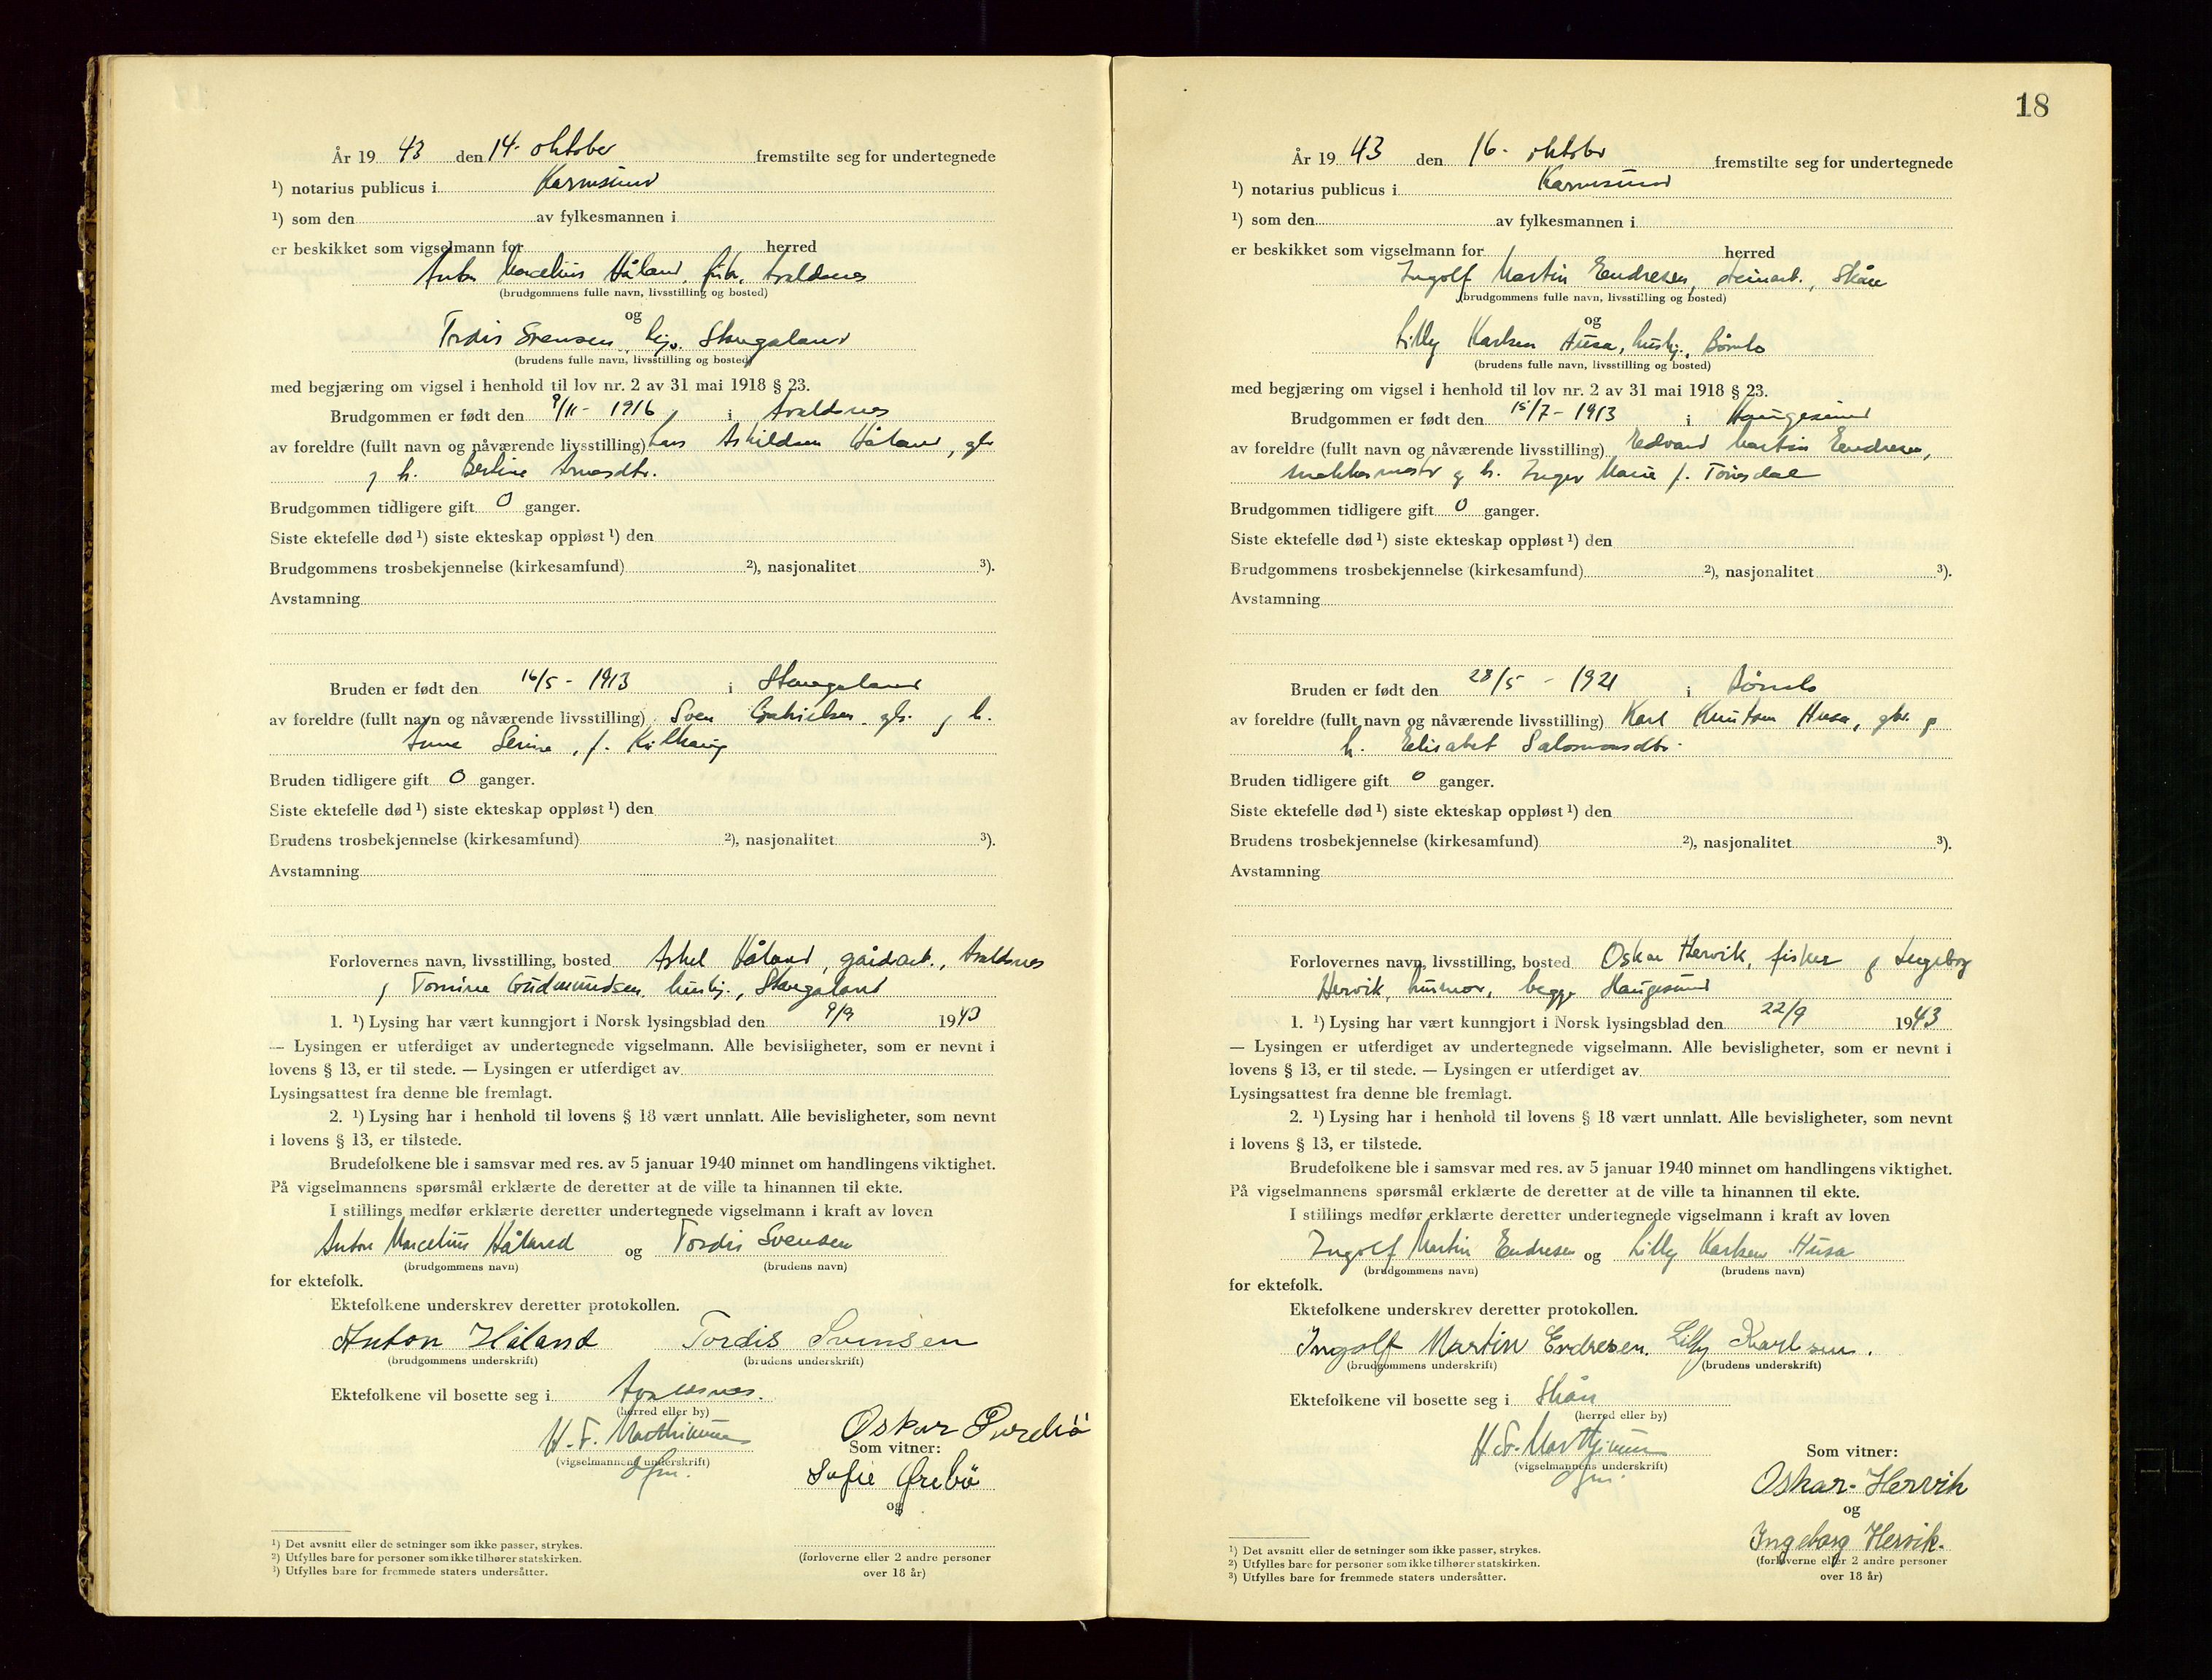 År 19 43 den 14. oktober fremstilte seg for undertegnede
¹) notarius publicus i Karmsund
¹) som den av fylkesmannen i
er beskikket som vigselmann for herred
Anton Marcelius Håland, fisk., Avaldsnes
(brudgommens fulle navn, livsstilling og bosted)
og
Tordis Svensen, Stangaland
(brudens fulle navn, livsstilling og bosted)
med begjæring om vigsel i henhold til lov nr. 2 av 31 mai 1918 § 23.
Brudgommen er født den 9/11 - 1916 i Avaldsnes
av foreldre (fullt navn og nåværende livsstilling) Lars Askildsen Håland, gbr
og h. Bertine Arnesdtr.
Brudgommen tidligere gift 0 ganger.
Siste ektefelle død ¹) siste ekteskap oppløst ¹) den
Brudgommens trosbekjennelse (kirkesamfund) ²), nasjonalitet ³).
Avstamning
Bruden er født den 16/5 - 1913 i Stangaland
av foreldre (fullt navn og nåværende livsstilling) Sven Gabrielsen gbr. og h.
Anne Serine, f. Kolhaug
Bruden tidligere gift 0 ganger.
Siste ektefelle død ¹) siste ekteskap oppløst ¹) den
Brudens trosbekjennelse (kirkesamfund) ²), nasjonalitet ³).
Avstamning
Forlovernes navn, livsstilling, bosted Askel Håland, gårdarb., Avaldsnes
og Tomine Gudmundsen husbj., Stangaland
1. ¹) Lysing har vært kunngjort i Norsk lysingsblad den 9/9 1943
— Lysingen er utferdiget av undertegnede vigselmann. Alle bevisligheter, som er nevnt i
lovens § 13, er til stede. — Lysingen er utferdiget av
Lysingsattest fra denne ble fremlagt.
2. ¹) Lysing har i henhold til lovens § 18 vært unnlatt. Alle bevisligheter, som nevnt
i lovens § 13, er tilstede.
Brudefolkene ble i samsvar med res. av 5 januar 1940 minnet om handlingens viktighet.
På vigselmannens spørsmål erklærte de deretter at de ville ta hinannen til ekte.
I stillings medfør erklærte deretter undertegnede vigselmann i kraft av loven
Anton Marcelius Håland og Tordis Svensen
(brudgommens navn) (brudens navn)
for ektefolk.
Ektefolkene underskrev deretter protokollen.
Anton Håland Tordis Svensen
(brudgommens underskrift) (brudens underskrift)
Ektefolkene vil bosette seg i Avaldsnes.
(herred eller by)
H. F. Marthinussen Oskar
(vigselmannens underskrift) Som vitner:
Sofie Ørebö
og
¹) Det avsnitt eller de setninger som ikke passer, strykes.
²) Utfylles bare for personer som ikke tilhører statskirken.
³) Utfylles bare for fremmede staters undersåtter.
(forloverne eller 2 andre personer
over 18 år)
18
År 19 43 den 16. oktobr fremstilte seg for undertegnede
¹) notarius publicus i Karmsund
¹) som den av fylkesmannen i
er beskikket som vigselmann for herred
Ingolf Martin Endresen, steinarb., Skåre
(brudgommens fulle navn, livsstilling og bosted)
og
Lilly Karlsen Husa, husbj., Bømlo
(brudens fulle navn, livsstilling og bosted)
med begjæring om vigsel i henhold til lov nr. 2 av 31 mai 1918 § 23.
Brudgommen er født den 15/7 - 1913 i Haugesund
av foreldre (fullt navn og nåværende livsstilling) Edvard Martin Endresen,
og h. Inger Marie f. Tonsdal
Brudgommen tidligere gift 0 ganger.
Siste ektefelle død ¹) siste ekteskap oppløst ¹) den
Brudgommens trosbekjennelse (kirkesamfund) ²), nasjonalitet ³).
Avstamning
Bruden er født den 28/5 - 1921 i Bømlo
av foreldre (fullt navn og nåværende livsstilling) Karl Knutsen Husa, gbr. og
h. Elisabet Salomonsdtr.
Bruden tidligere gift 0 ganger.
Siste ektefelle død ¹) siste ekteskap oppløst ¹) den
Brudens trosbekjennelse (kirkesamfund) ²), nasjonalitet ³).
Avstamning
Forlovernes navn, livsstilling, bosted Oskar Hervik, fisker og Ingeborg
Hervik, husmor, begge Haugesund
1. ¹) Lysing har vært kunngjort i Norsk lysingsblad den 22/9 1943
— Lysingen er utferdiget av undertegnede vigselmann. Alle bevisligheter, som er nevnt i
lovens § 13, er til stede. — Lysingen er utferdiget av
Lysingsattest fra denne ble fremlagt.
2. ¹) Lysing har i henhold til lovens § 18 vært unnlatt. Alle bevisligheter, som nevnt
i lovens § 13, er tilstede.
Brudefolkene ble i samsvar med res. av 5 januar 1940 minnet om handlingens viktighet.
På vigselmannens spørsmål erklærte de deretter at de ville ta hinannen til ekte.
I stillings medfør erklærte deretter undertegnede vigselmann i kraft av loven
Ingolf Martin Endresen og Lilly Karlsen Husa
(brudgommens navn) (brudens navn)
for ektefolk.
Ektefolkene underskrev deretter protokollen.
Ingolf Martin Endresen. Lilly Karlsen.
(brudgommens underskrift) (brudens underskrift)
Ektefolkene vil bosette seg i Skåre
(herred eller by)
H. F. Marthinussen Som vitner:
(vigselmannens underskrift)
Oskar Hervik
og
Ingeborg Hervik.
¹) Det avsnitt eller de setninger som ikke passer, strykes.
²) Utfylles bare for personer som ikke tilhører statskirken.
³) Utfylles bare for fremmede staters undersåtter.
(forloverne eller 2 andre personer
over 18 år)